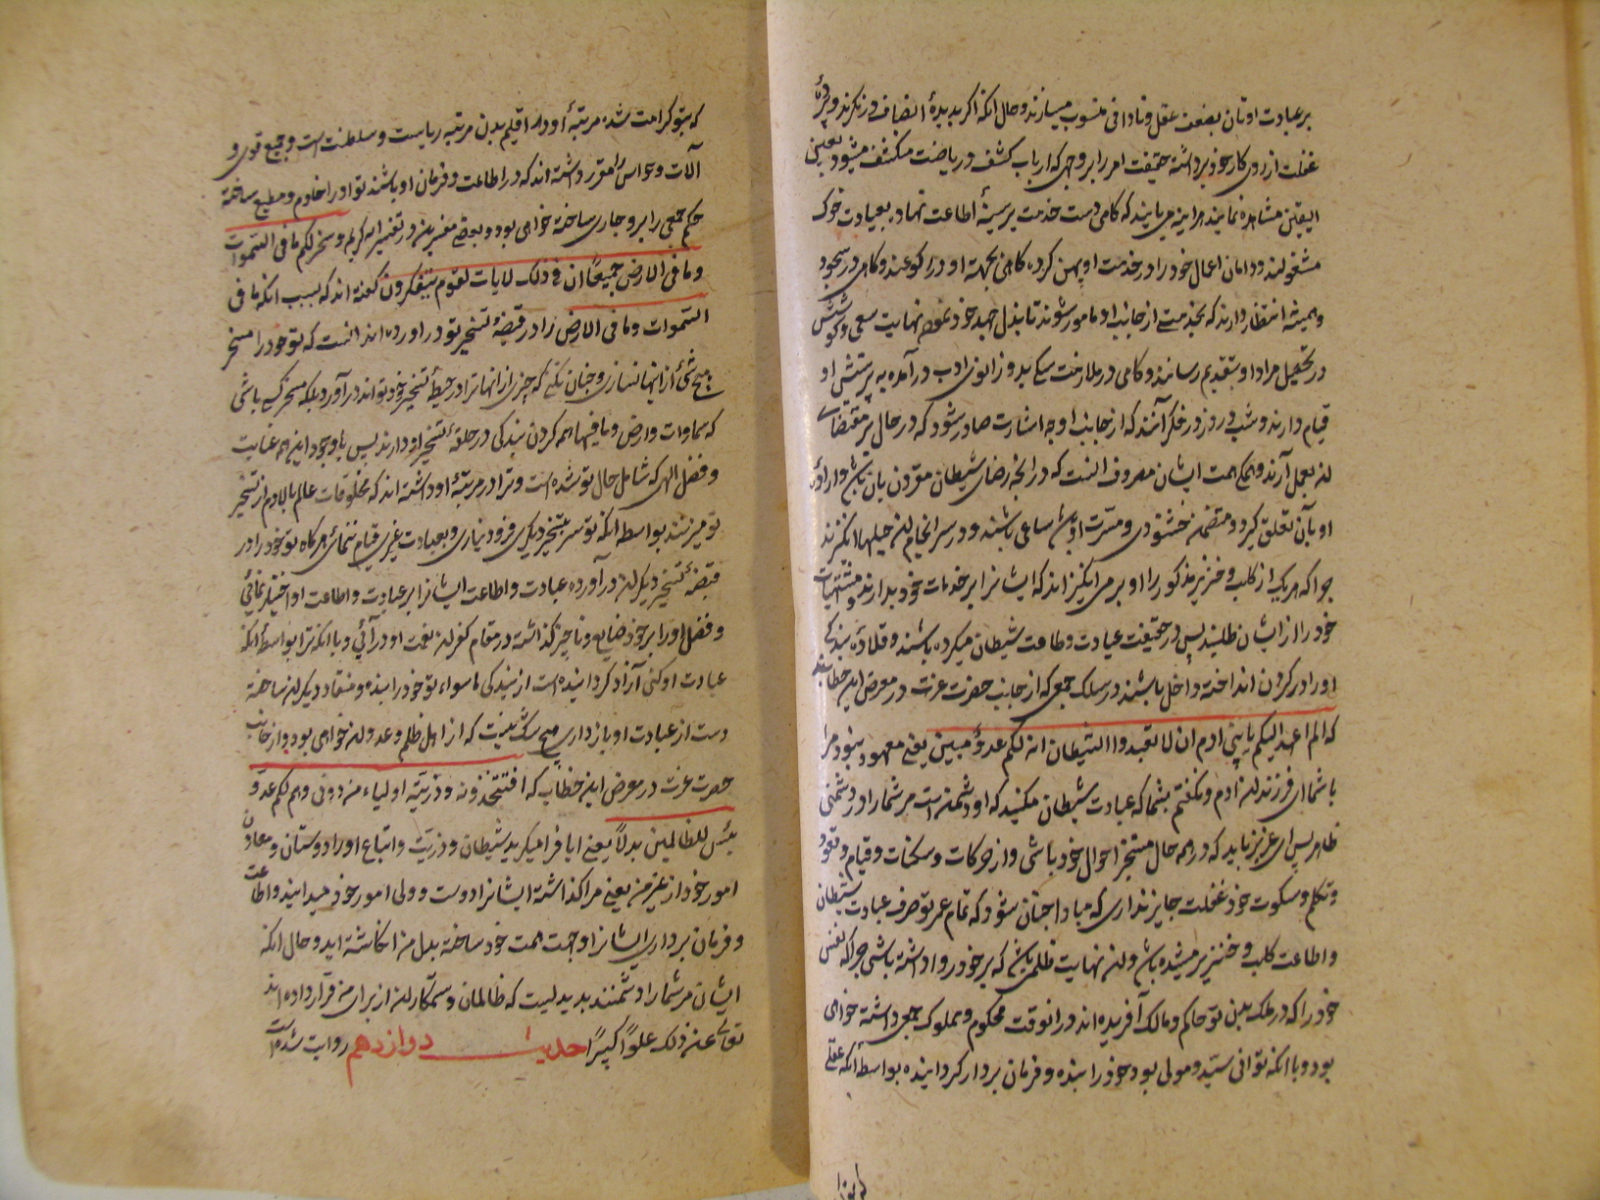 بر عبادت اوثان بضعف عقل و نادانی منسوب میسازند و حال آنکه اگر بدیدهٔ انصاف در نگرند و پردهٔ
غفلت از روی کار خود برداشته حقیقت امر را بر وجهی که ارباب کشف و ریاضت را منکشف میشود بعین
الیقین مشاهده نمایند هر اینه می یابند که گاهی دست خدمت بر سینهٔ اطاعت نهاده بعبادت خوک
مشغولند و دامان اعمال خود را در خدمت او پهن کرده گاهی بجهة او در رکوعند و گاهی در سجود
و همیشه انتظار دارند که بخدمتی از جانب او مامور شوند تا بذل جهد خود نموده نهایت سعی و کوشش
در تحصیل مراد او بتقدیم رسانند و گاهی در ملازمت سگ بدو زانوی ادب در آمده به پرستش او
قیام دارند و شب و روز در فکر آنند که از جانب او چه اشارت صادر شود که در حال بر مقتضای
ان بعمل آرند و همگی همت ایشان مصروف انست که در انچه رضای شیطان مقرون بان باشد و ارادهٔ
او بآن تعلق گیرد و متضمن خشنودی و مسرت او باشد ساعی باشند و در سرانجام ان حیلها انگیزند
چرا که هر یک از کلب و خنزیر مذکور را او بر می انگیزاند که ایشانرا بر خدمات خود بدارند و مشتهیات
خود را از ایشان طلبند پس در حقیقت عبادت و طاعت شیطان میکرده باشند و قلادهٔ بندگی
او را در گردن انداخته داخل باشند در سلک جمعی که از جانب حضرت عزت در معرض این خطابند
که الم اعهد الیکم یا بنی ادم ان لا تعبدوا الشیطان انه لکم عدو مبین یعنی معهود نبود مرا
با شما ای فرزندان ادم و نگفتم بشما که عبادت شیطان مکنید که او دشمن است مر شما را و دشمنی
ظاهر پس ای عزیز باید که در همه حال متفحص احوال خود باشی و از حرکات و سکنات و قیام و قعود
و تکلم و سکوت خود غفلت جایز نداری که مبادا چنان شود که تمام عمر تو صرف عبادت شیطان
و اطاعت کلب و خنزیر میشده باشد و این نهایت ظلمی باشد که بر خود روا داشته باشی چرا که نفس
خود را که در ملک بدن تو حاکم و مالک آفریده اند در انوقت محکوم و مملوک جمعی داشته خواهی
بود و با آنکه توانی سید و مولی بود خود را بنده و فرمان بردار گردانیده بواسطه آنکه عقلی
که بتو کرامت شده مرتبهٔ او در اقلیم بدن مرتبه ریاست و سلطنت است و جمیع قوی و
آلات و حواس را مقرر داشته اند که در اطاعت و فرمان او باشند تو او را خادم و مطیع ساخته
حکم جمعی را بر او جاری ساخته خواهی بود و بعضی مفسرین در تفسیر ایه کریمه و سخر لکم ما فی السموات
و ما فی الارض جمیعاً ان فی ذلک لایات لقوم یتفکرون گفته اند که سبب آنکه ما فی
السموات و ما فی الارض را در قبضهٔ تسخیر تو در اورده اند انست که تو خود را مسخر
هیچ شئ از انها نسازی و چنان نکنی که چیزی از انها ترا در حیطهٔ تسخیر خود تواند در آورد بلکه مسخر کسی باشی
که سماوات و ارض و ما فیها همه گردن بندگی در حلقهٔ تسخیر او دارند پس با وجود این همه عنایت
و فضل الهی که شامل حال تو شده است و ترا در مرتبهٔ او داشته اند که مخلوقات عالم بالا دم از تسخیر
تو میزنند بواسطه آنکه تو سر بتسخیر دیگری فرود نیاری و بعبادت غیری قیام ننمائی هر گاه تو خود را در
قبضهٔ تسخیر دیگران در آورده عبادت و اطاعت ایشانرا بر عبادت و اطاعت او اختیار نمائی
و فضل او را بر خود ضایع و ناچیز گذاشته در مقام کفران نعمت او در آئی و با آنکه ترا بواسطه آنکه
عبادت او کنی آزاد گردانیده است از بندگی ما سواء تو خود را بنده و منقاد دیگران ساخته
دست از عبادت او بازداری هیچ شک نیست که از اهل ظلم و عدوان خواهی بود و از جانب
حضرت عزت در معرض این خطاب که افتتخذونه و ذریته اولیاء من دونی و هم لکم عدو
بئس للظالمین بدلاً یعنی ایا فرا میگیرید شیطان و ذریت و اتباع او را دوستان و معاونان
امور خود از غیر من یعنی مرا گذاشته ایشانرا دوست و ولی امور خود میدانید و اطاعت
و فرمان برداری ایشانرا وجهت همت خود ساخته بدل من انگاشته اید و حال آنکه
ایشان مر شما را دشمنند بد بدلیست که ظالمان و ستمکاران از برای من قرار داده اند
تعالی عن ذلک علواً کبیراً حدیث دوازدهم روایت شده است